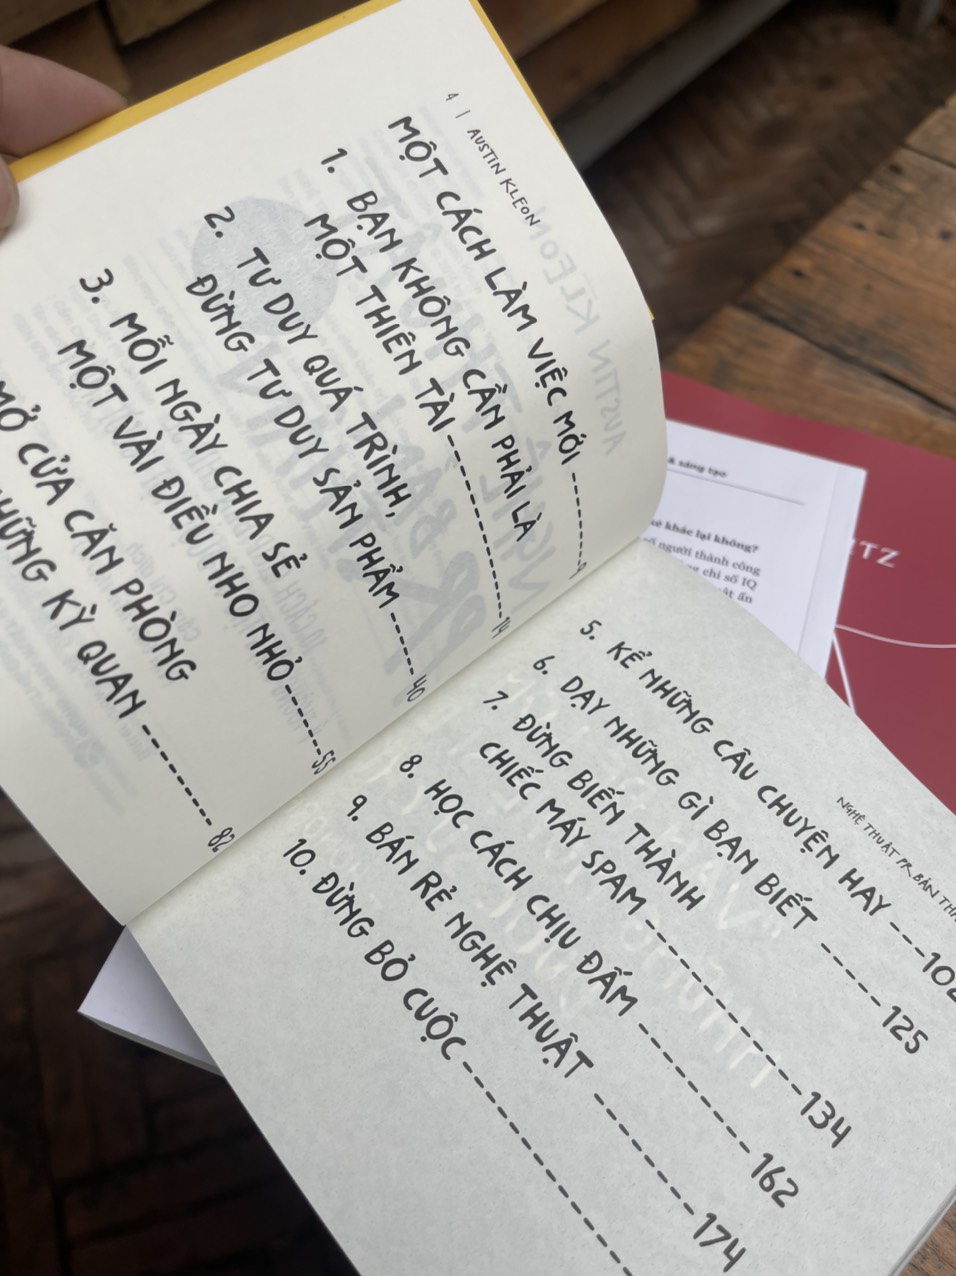 4 | AUSTIN KLEON
MỘT CÁCH LÀM VIỆC MỚI ------- 9
1. BẠN KHÔNG CẦN PHẢI LÀ
MỘT THIÊN TÀI --------------- 14
2. TƯ DUY QUÁ TRÌNH,
ĐỪNG TƯ DUY SẢN PHẨM ------ 40
3. MỖI NGÀY CHIA SẺ
MỘT VÀI ĐIỀU NHO NHỎ ------- 55
MỞ CỬA CĂN PHÒNG
NHỮNG KỲ QUAN --------- 82
NGHỆ THUẬT PR BẢN
5. KỂ NHỮNG CÂU CHUYỆN HAY ---102
6. DẠY NHỮNG GÌ BẠN BIẾT ------ 125
7. ĐỪNG BIẾN THÀNH
CHIẾC MÁY SPAM -------------- 134
8. HỌC CÁCH CHỊU ĐẤM ---------- 162
9. BÁN RẺ NGHỆ THUẬT --------- 174
10. ĐỪNG BỎ CUỘC ----------------
& sáng tạo
khác lại không?
người thành công
chỉ số IQ
ẩn
TZ